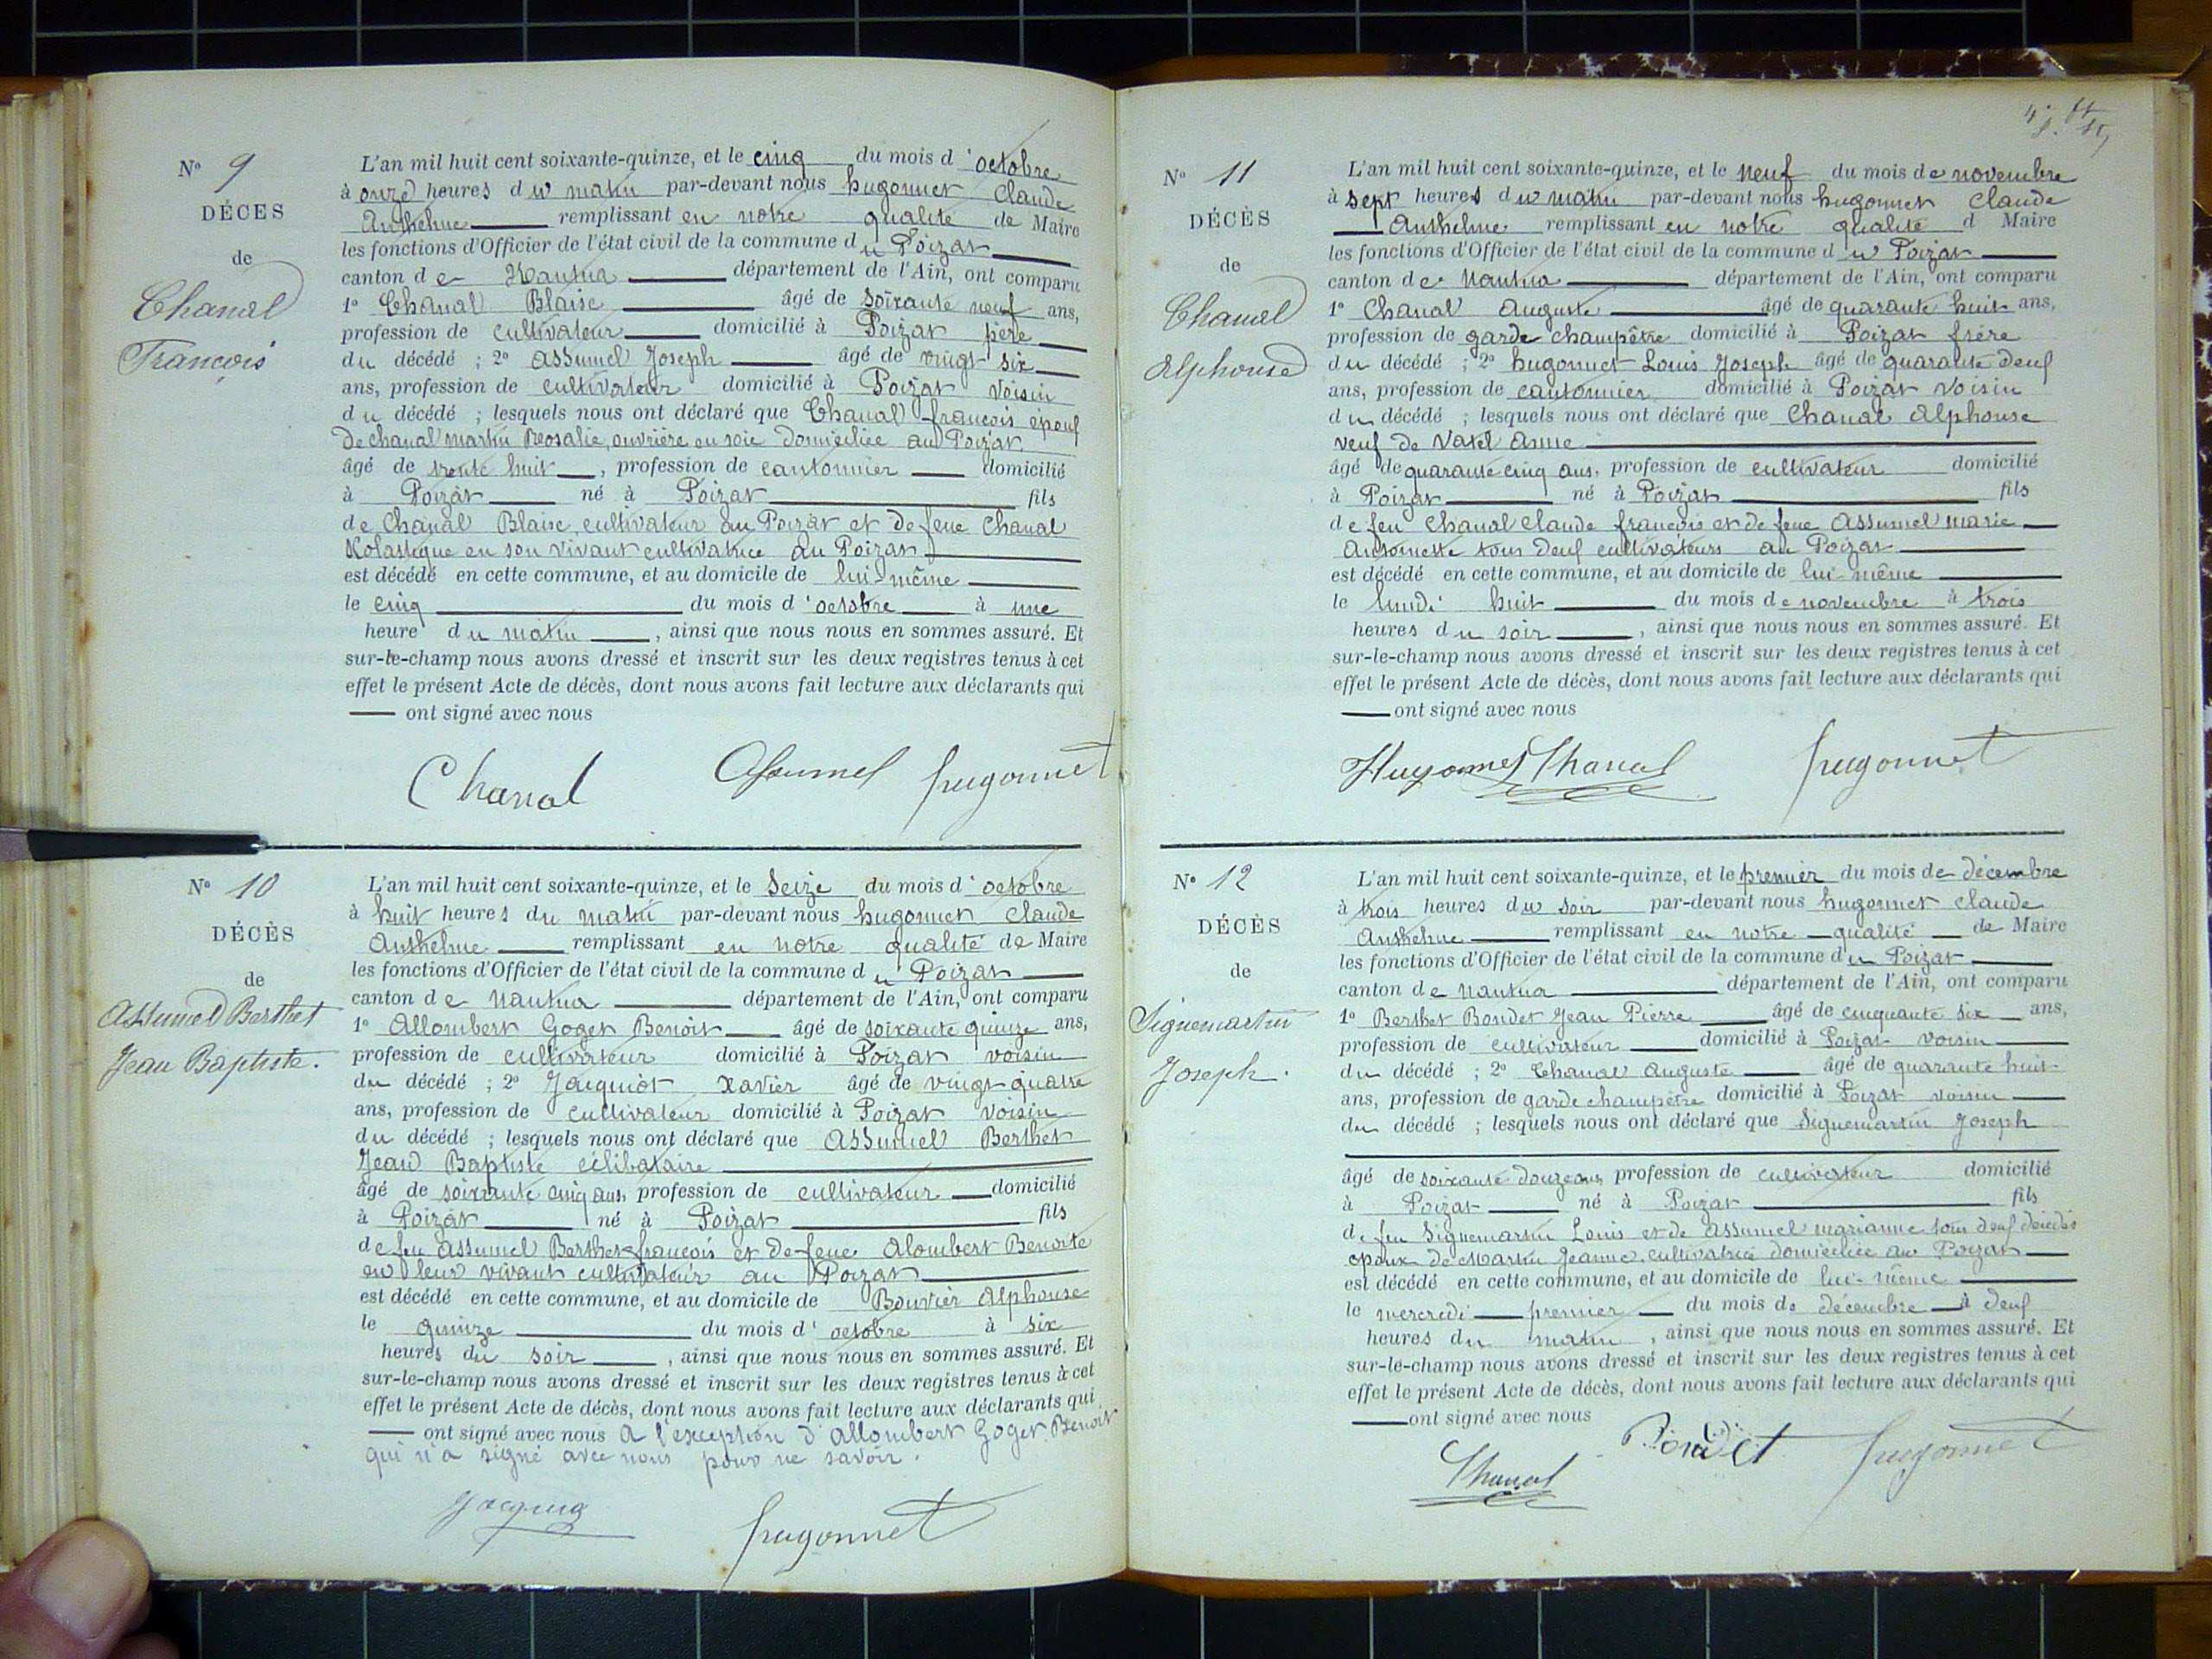 N° 9
DÉCES
de
Chanal
François
L'an mil huit cent soixante-quinze, et le cinq du mois d'octobre
à onze heures du matin par-devant nous hugonnet Claude
Anthelme remplissant en notre qualité de Maire
les fonctions d'Officier de l'état civil de la commune du Poizat
canton de Nantua département de l'Ain, ont comparu
1° Chanal Blaise âgé de soixante neuf ans,
profession de cultivateur domicilié à Poizat père
du décédé ; 2° assumel Joseph âgé de vingt six
ans, profession de cultivateur domicilié à Poizat voisin
du décédé ; lesquels nous ont déclaré que Chanal françois époux
de chanal martin Rosalie, ouvrière en soie domiciliée au Poizat.
âgé de trente huit, profession de cantonnier domicilié
à Poizat né à Poizat fils
de Chanal Blaise, cultivateur au Poizat et de feue Chanal
Kolastique en son vivant cultivatrice au Poizat
est décédé en cette commune, et au domicile de lui-même
le cinq du mois d'octobre à une
heure du matin, ainsi que nous nous en sommes assuré. Et
sur-le-champ nous avons dressé et inscrit sur les deux registres tenus à cet
effet le présent Acte de décès, dont nous avons fait lecture aux déclarants qui
ont signé avec nous
Chanal Assumel hugonnet
N° 10
DÉCÈS
de
Assumel Berthet
Jean Baptiste.
L'an mil huit cent soixante-quinze, et le seize du mois d'octobre
à huit heures du matin par-devant nous hugonnet Claude
Anthelme remplissant en notre qualité de Maire
les fonctions d'Officier de l'état civil de la commune du Poizat
canton de Nantua département de l'Ain, ont comparu
1° Allombert Goget Benoit âgé de soixante quinze ans,
profession de cultivateur domicilié à Poizat voisin
du décédé ; 2° Jacquiot Xavier âgé de vingt quatre
ans, profession de cultivateur domicilié à Poizat voisin
du décédé ; lesquels nous ont déclaré que Assumel Berthet
Jean Baptiste célibataire
âgé de soixante cinq ans, profession de cultivateur domicilié
à Poizat né à Poizat fils
de feu Assumel Berthet françois et de feue Alombert Benoite
en leur vivant cultivateur au Poizat
est décédé en cette commune, et au domicile de Bouvier Alphonse
le quinze du mois d'octobre à six
heures du soir, ainsi que nous nous en sommes assuré. Et
sur-le-champ nous avons dressé et inscrit sur les deux registres tenus à cet
effet le présent Acte de décès, dont nous avons fait lecture aux déclarants qui
ont signé avec nous à l'exception d'allombert Goget Benoit
qui n'a signé avec nous pour ne savoir.
hugonnet
N° 11
DÉCÈS
de
Chanal
Alphonse
L'an mil huit cent soixante-quinze, et le neuf du mois de novembre
à sept heures du matin par-devant nous hugonnet Claude
Anthelme remplissant en notre qualité d Maire
les fonctions d'Officier de l'état civil de la commune du Poizat
canton de Nantua département de l'Ain, ont comparu
1° Chanal Auguste âgé de quarante huit ans,
profession de garde champêtre domicilié à Poizat frère
du décédé ; 2° hugonnet Louis Joseph âgé de quarante deux
ans, profession de cantonnier domicilié à Poizat voisin
du décédé ; lesquels nous ont déclaré que Chanal Alphonse
veuf de Vatel Anne
âgé de quarante cinq ans, profession de cultivateur domicilié
à Poizat né à Poizat fils
de feu Chanal Claude françois et de feue Assumel marie
Antoinette tous deux cultivateurs au Poizat
est décédé en cette commune, et au domicile de lui-même
le lundi huit du mois de novembre à trois
heures du soir, ainsi que nous nous en sommes assuré. Et
sur-le-champ nous avons dressé et inscrit sur les deux registres tenus à cet
effet le présent Acte de décès, dont nous avons fait lecture aux déclarants qui
ont signé avec nous
Hugonnet Chanal hugonnet
N° 12
DÉCÈS
de
Signemartin
Joseph.
L'an mil huit cent soixante-quinze, et le premier du mois de décembre
à trois heures du soir par-devant nous hugonnet Claude
Anthelme remplissant en notre qualité de Maire
les fonctions d'Officier de l'état civil de la commune du Poizat
canton de Nantua département de l'Ain, ont comparu
1° Berthet Bondet Jean Pierre âgé de cinquante six ans,
profession de cultivateur domicilié à Poizat voisin
du décédé ; 2° Chanal Auguste âgé de quarante huit
ans, profession de garde champêtre domicilié à Poizat voisin
du décédé ; lesquels nous ont déclaré que Signemartin Joseph
âgé de soixante douze ans, profession de cultivateur domicilié
à Poizat né à Poizat fils
de feu Signemartin Louis et de Assumel marianne tous deux décédés
époux de Martin Jeanne, cultivatrice domiciliée au Poizat
est décédé en cette commune, et au domicile de lui-même
le mercredi premier du mois de décembre à deux
heures du matin, ainsi que nous nous en sommes assuré. Et
sur-le-champ nous avons dressé et inscrit sur les deux registres tenus à cet
effet le présent Acte de décès, dont nous avons fait lecture aux déclarants qui
ont signé avec nous
Chanal Bondet hugonnet